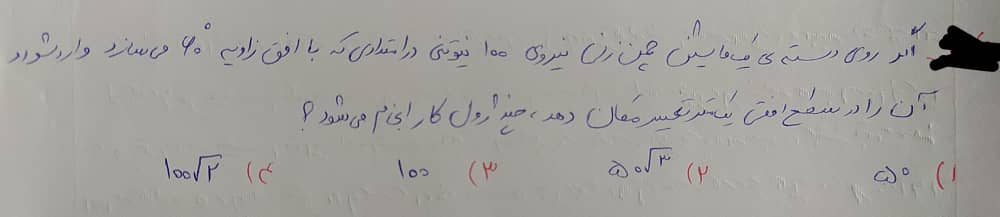 اگر روی دسته ی یک ماشین چمن زن نیروی ۱۰۰ نیوتنی در امتدادی که با افق زاویه ۶۰° می سازد وارد شود و
آن را در سطح افقی یک متر تغییر مکان دهد، چند ژول کار انجام می شود؟
۱) ۵۰ ۲) ۵۰√۳ ۳) ۱۰۰ ۴) ۱۰۰√۲